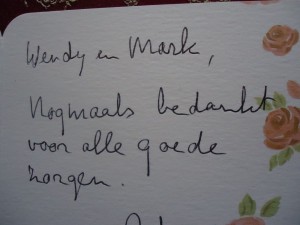 Wendy en Mark,
Nogmaals bedankt
voor alle goede
zorgen.